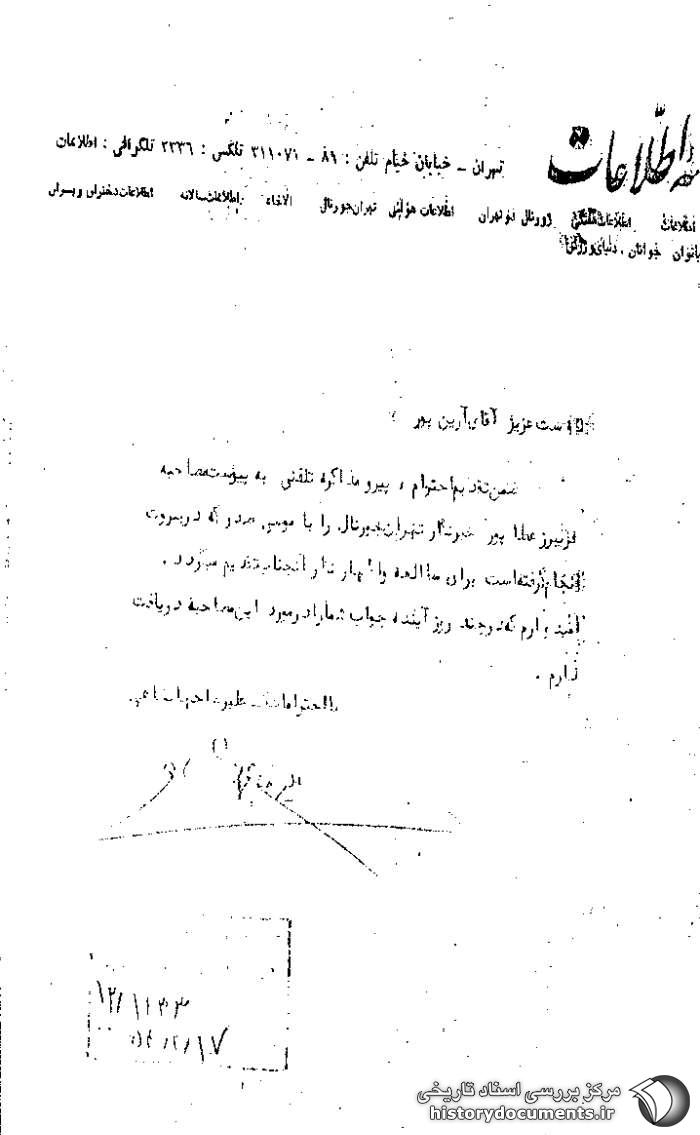 اطلاعات
تهران - خیابان خیام تلفن : ۸۱ - ۳۱۱۰۷۱ تلکس : ۲۳۳۶ تلگرافی : اطلاعات
اطلاعات اطلاعات هفتگی ژورنال دو تهران اطلاعات هوائی تهران جورنال الاخاء اطلاعات سالانه اطلاعات دختران و پسران
بانوان جوانان . دنیای ورزش
دوست عزیز آقای آرین پور
ضمن تقدیم احترام ، پیرو مذاکره تلفنی به پیوست مصاحبه
پور خبرنگار تهران جورنال را با موسی صدر که در بیروت
انجام گرفته است برای مطالعه و اظهار نظر آنجناب تقدیم میگردد .
امیدوارم که در چند روز آینده جواب شما را در مورد این مصاحبه دریافت
دارم .
با احترامات
۱۲/۱۱۳۳
مرکز بررسی اسناد تاریخی
historydocuments.ir